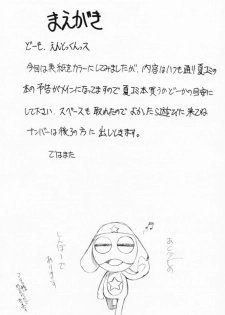 まえがき
どーも、えんどっくんっス
今回は表紙をカラーにしてみましたが、内容はいつも通り夏コミ
本の予告がメインになってますので夏コミ本買うかどーかの目安に
して下さい、スペースも取れたのでよかったら遊びに来てね
ナンバーは後ろの方に出しときます。
ではまた